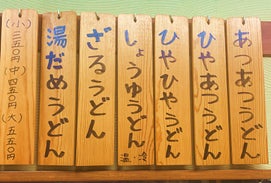 あつあつうどん
ひやあつうどん
ひやひやうどん
しょうゆうどん
温・冷
ざるうどん
湯だめうどん
(小)三五〇円(中)四五〇円(大)五五〇円